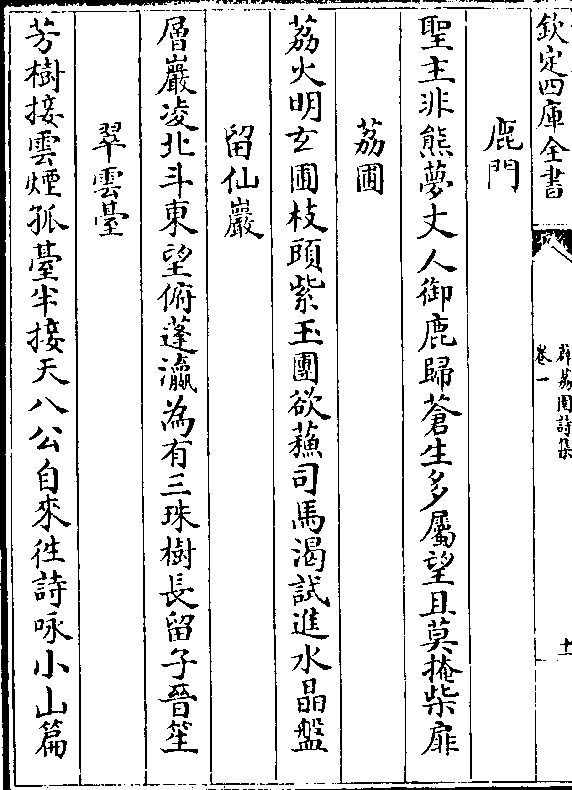 欽定四庫全書
薜荔園詩集
卷一
十
鹿門
聖主非熊夢丈人御鹿歸蒼生多屬望且莫掩柴扉
荔圃
荔火明玄圃枝頭紫玉團欲蘓司馬渴試進水晶盤
留仙巖
層巖凌北斗東望俯蓬瀛為有三珠樹長留子晉笙
翠雲臺
芳樹接雲煙孤臺半接天八公自來徃詩咏小山篇